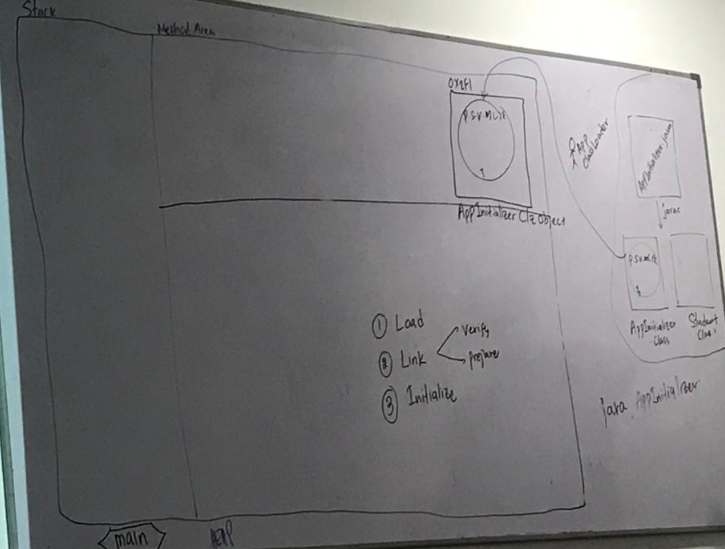 Stack
Method Area
0x2F1
P.S.V.M(){}
AppInitializer Clz Object
App
ClassLoader
AppInitializer.java
javac
P.S.V.M(){}
AppInitializer
.Class
Student
① Load
② Link
verify
prepare
③ Initialize
java AppInitializer
main